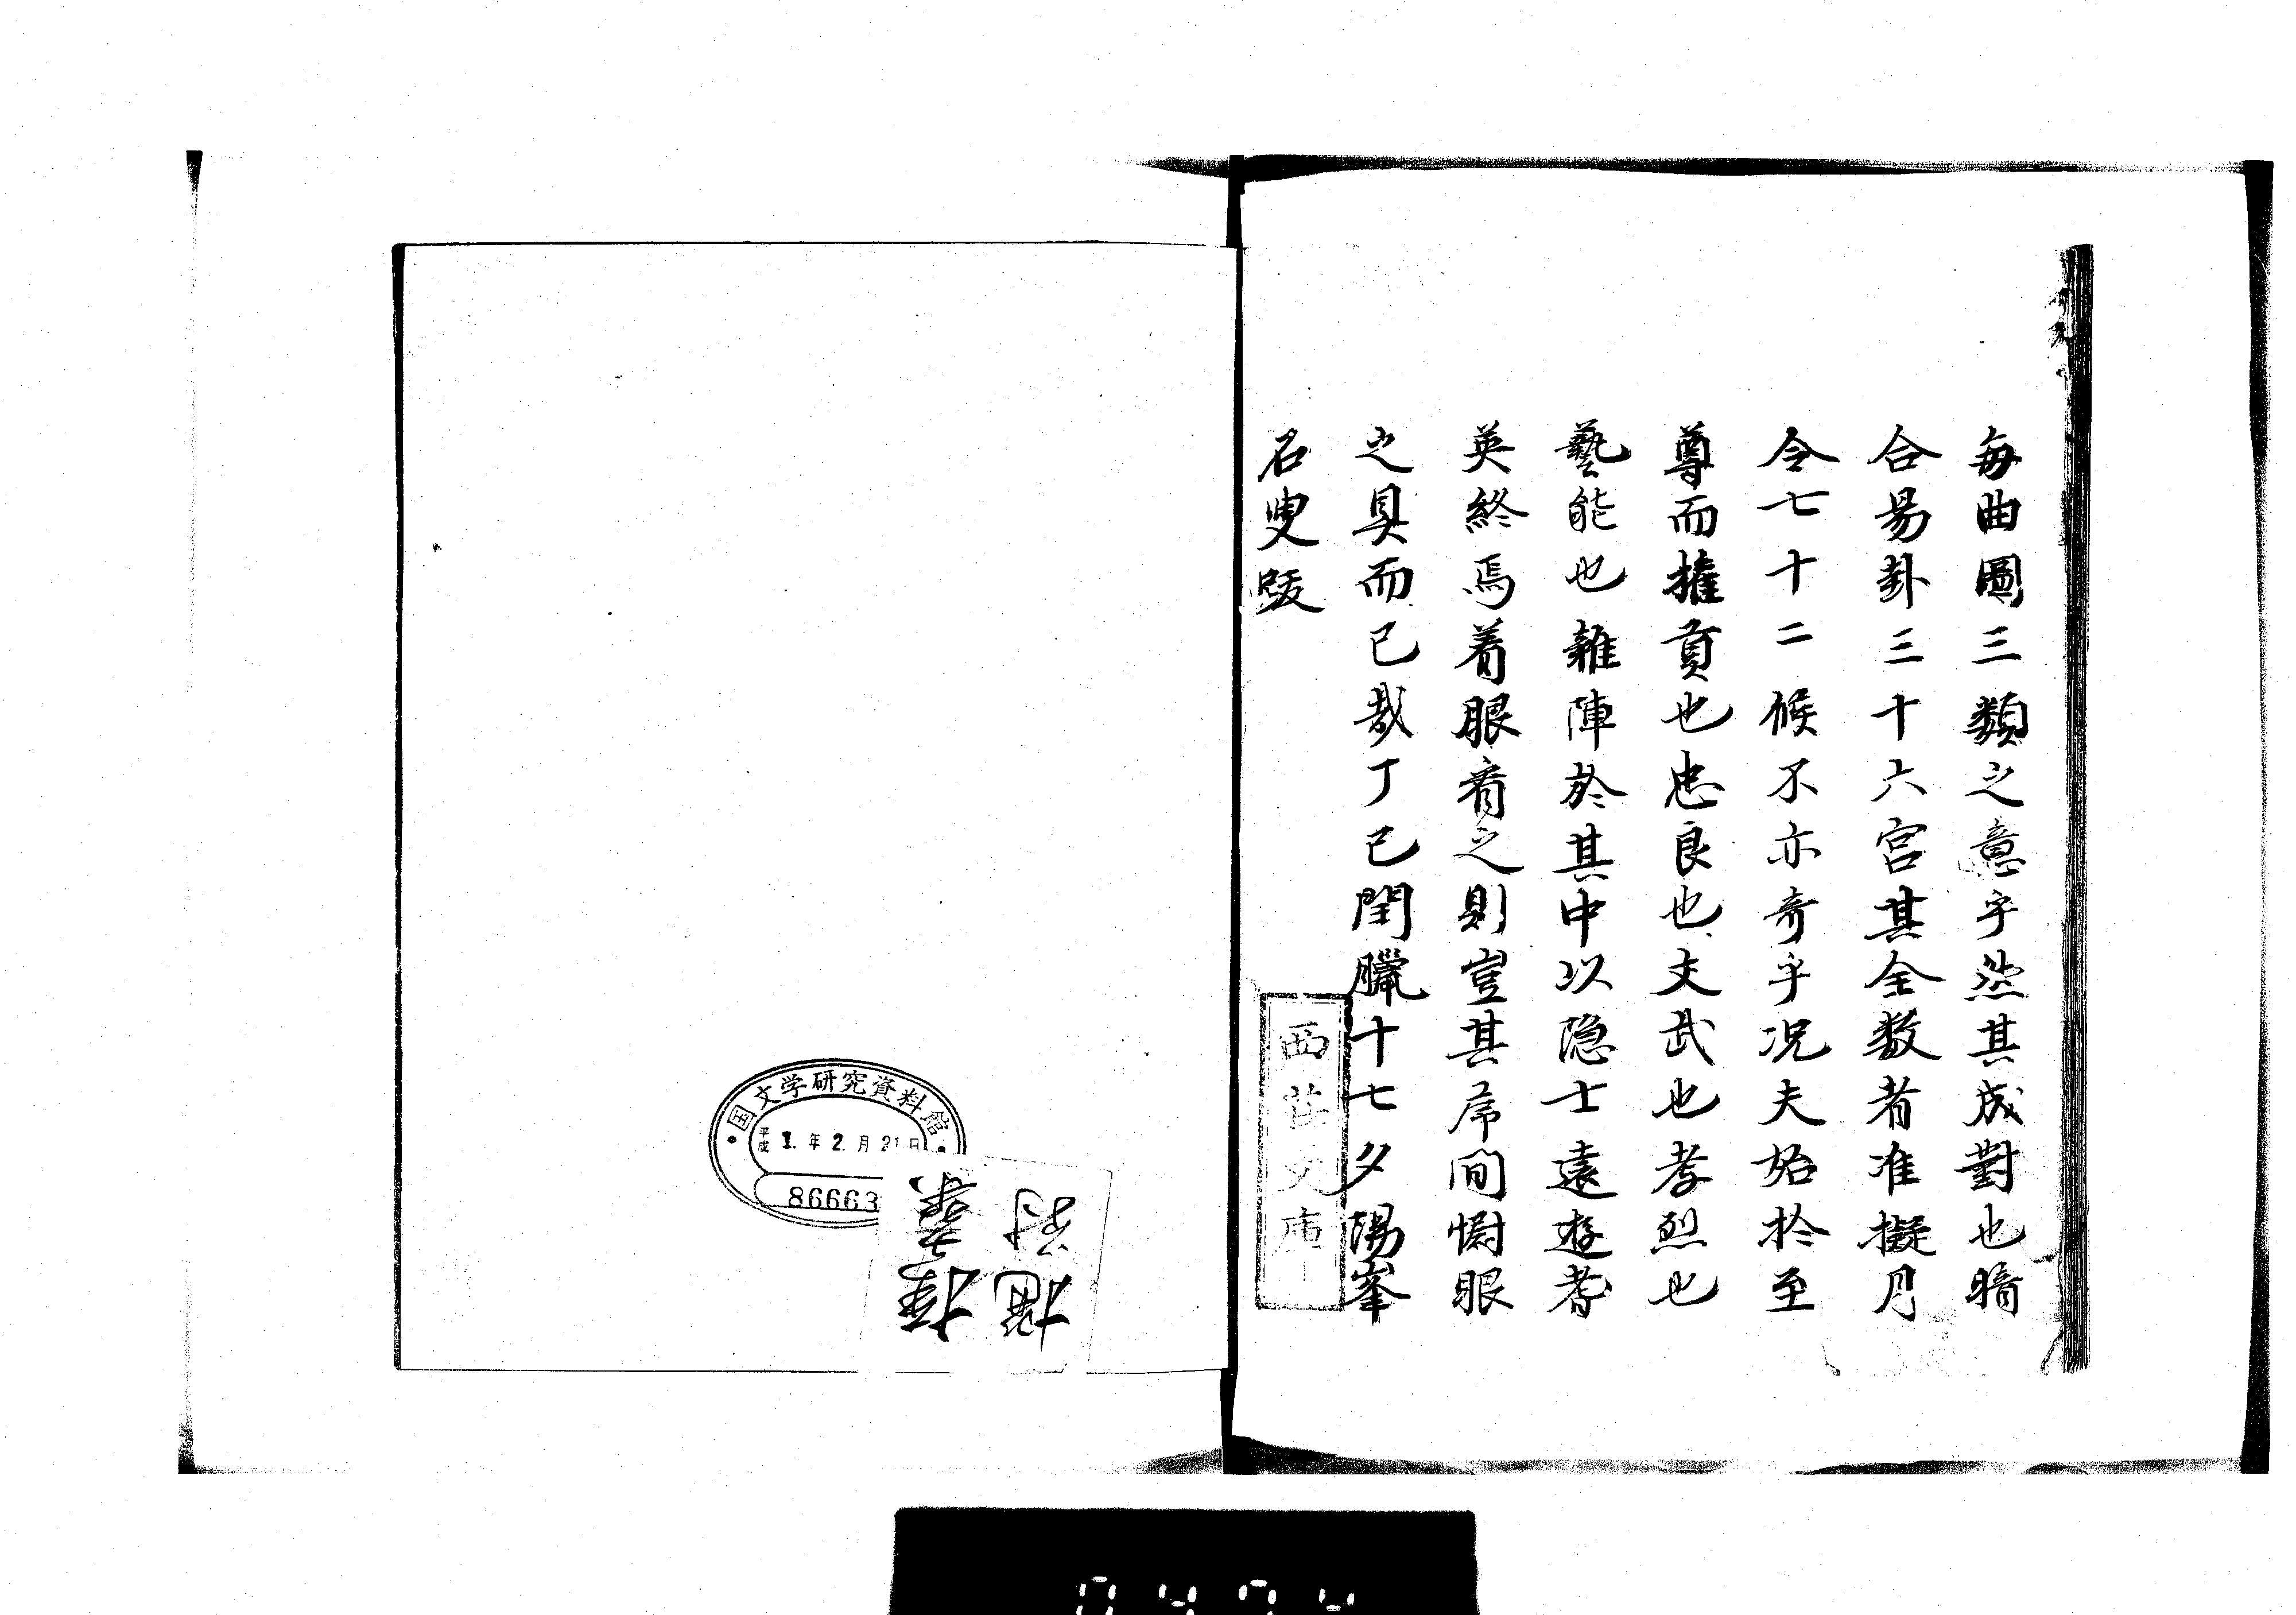 每曲圖三類之意乎然其成對也暗
合易卦三十六宮其全数者准擬月
令七十二候不亦奇乎況夫始於至
尊而攉貢也忠良也文武也孝烈也
藝能也雜陣於其中以隐士遠遊者
英終焉着眼看之則豈其席間慰眼
之具而已哉丁巳閏臘十七夕陽峯
石叟跋
西荘文庫
国文学研究資料館
平成 1.年 2.月 21日
86663